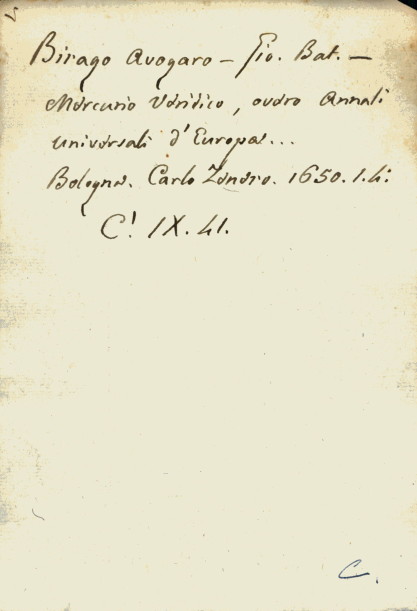 Birago Avogaro - Gio. Bat. -
Mercurio Veridico, overo Annali
universali d'Europa...
Bologna. Carlo Zenero. 1650. 1. 4:
C! IX. 41.
C.